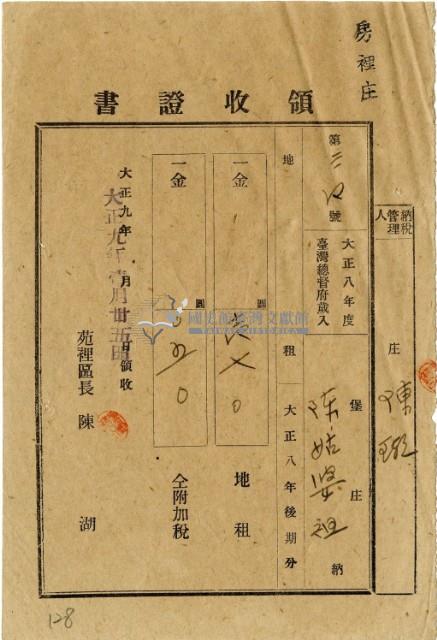 房裡庄
領收證書
納稅管理人
庄
陳
第三 號
大正八年度
臺灣總督府歲入
地租
大正八年後期分
堡 庄
陳姑婆祖
納
一金
圓
地租
一金
圓
仝附加稅
大正九年 月 日領收
大正九年壹月廿五日
苑裡區長 陳湖
國史館臺灣文獻館
TAIWAN HISTORICA
128